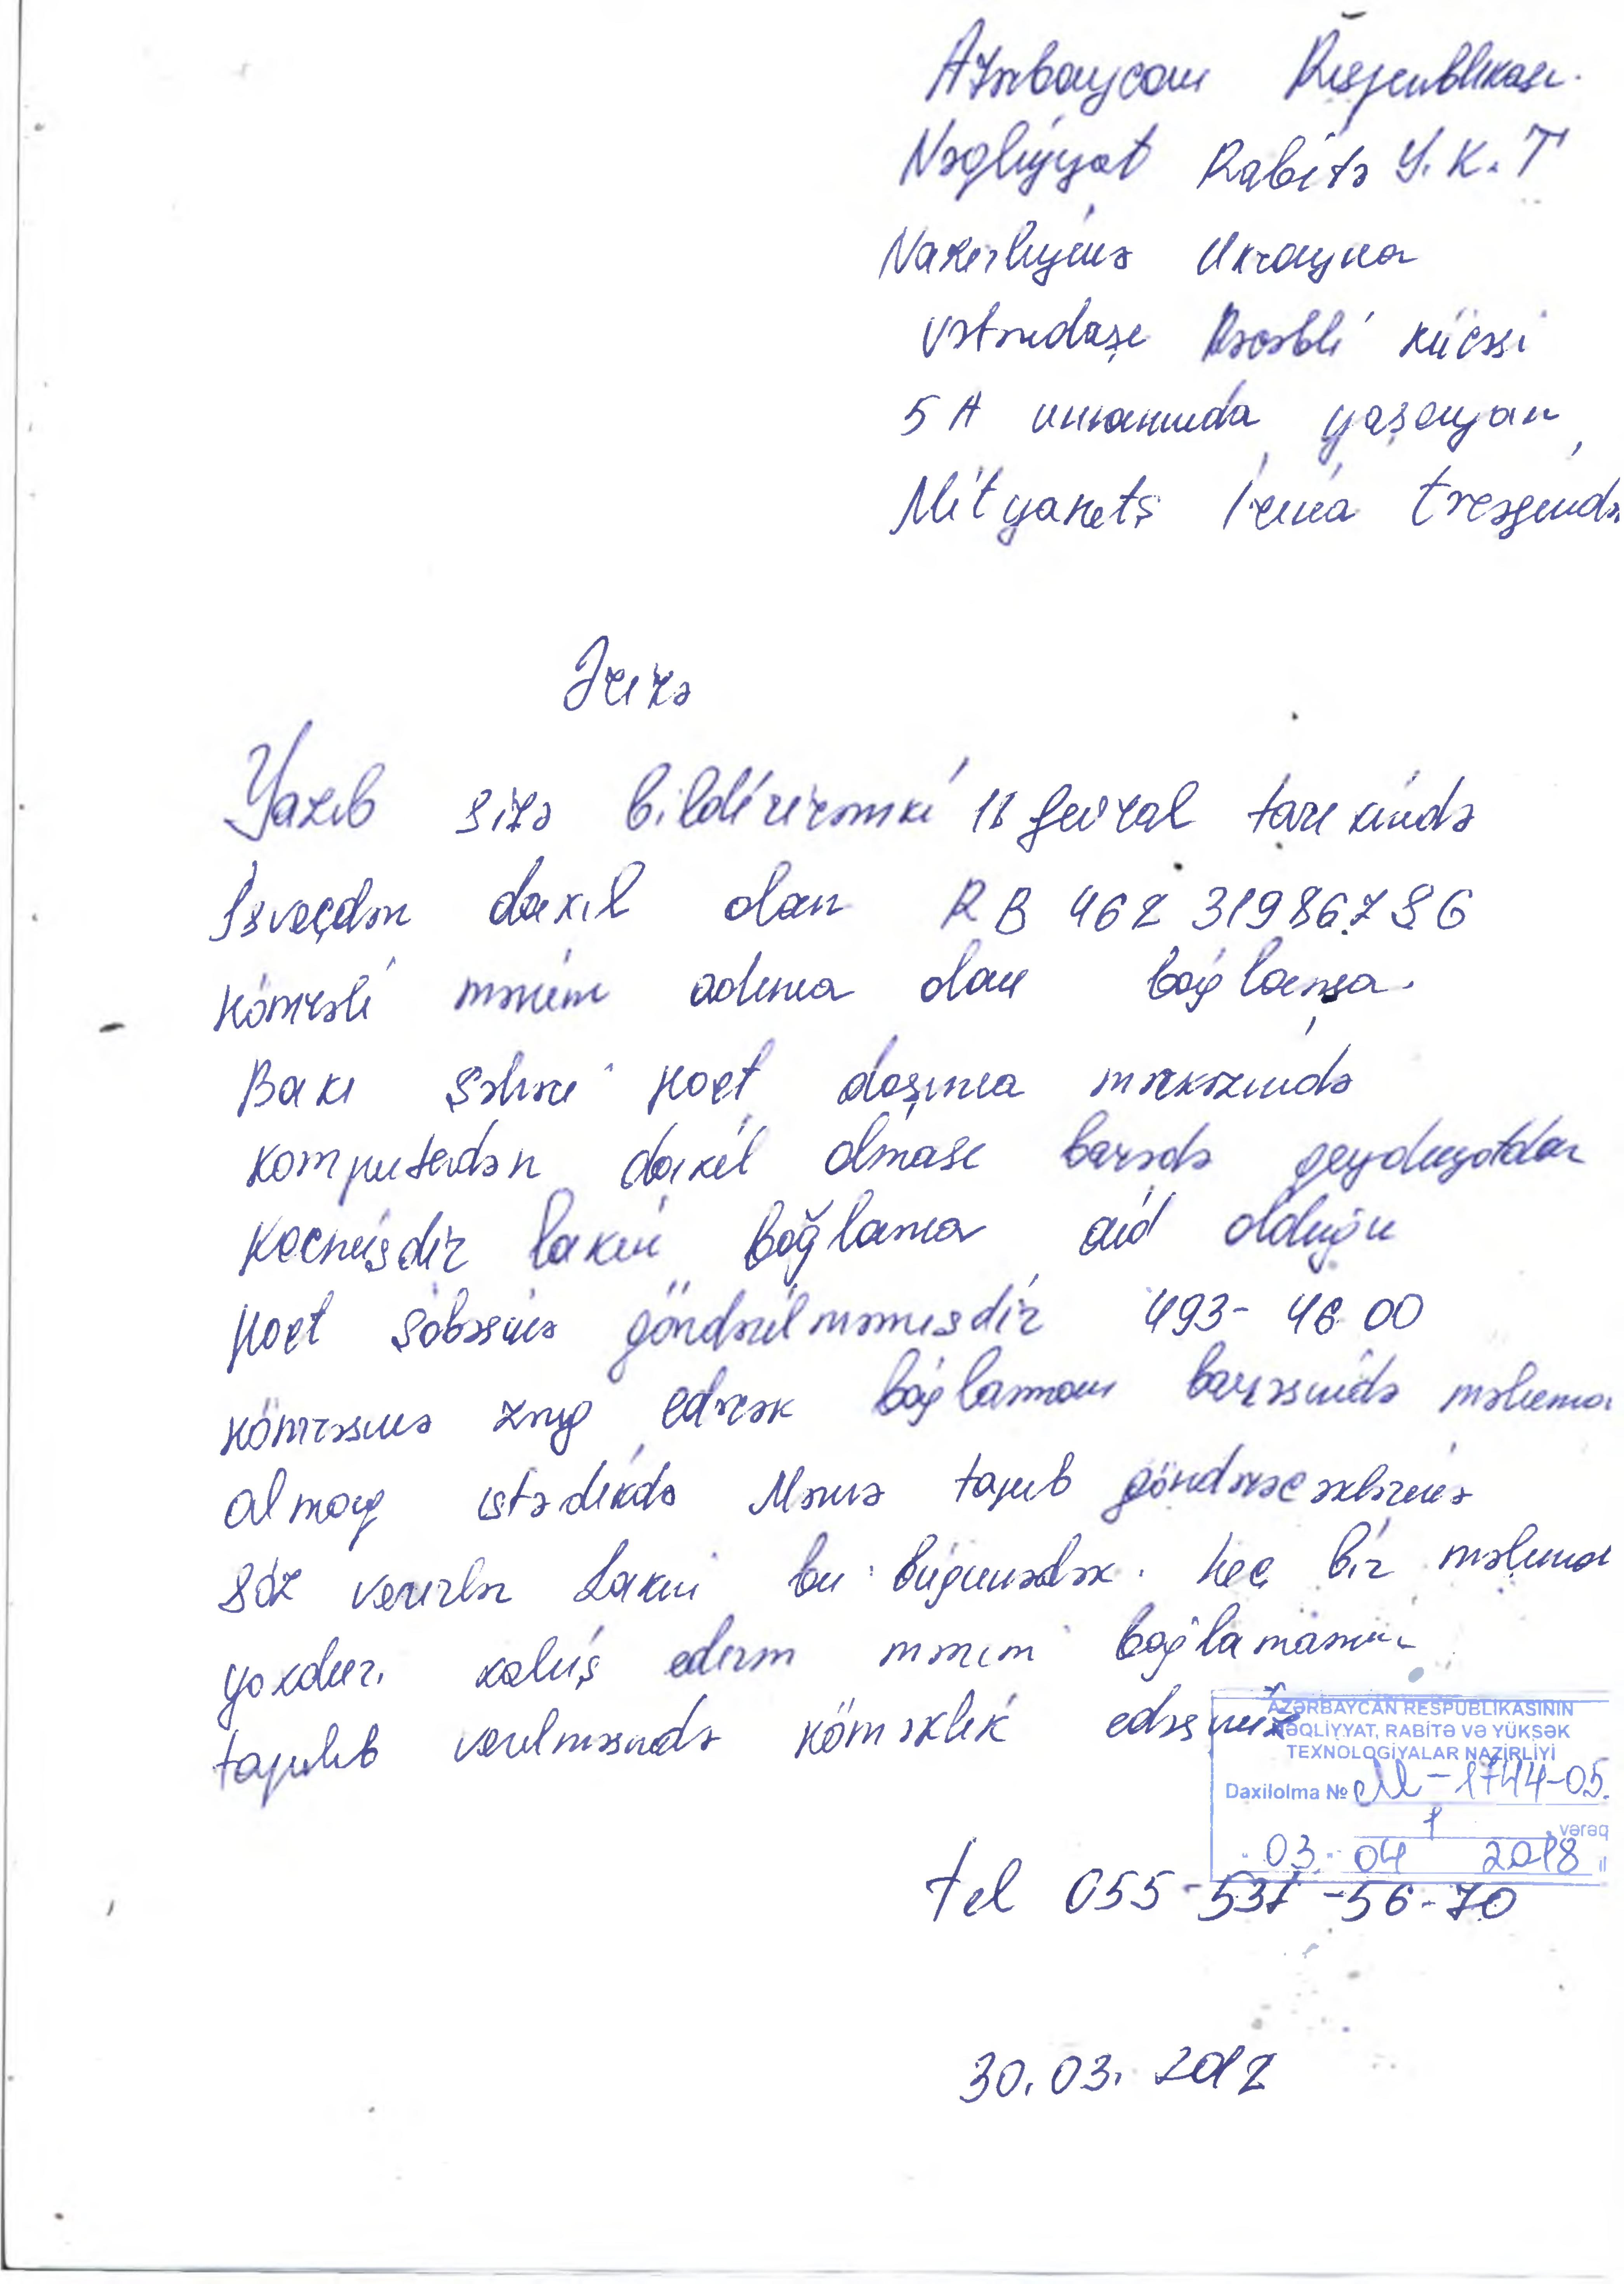 Azərbaycan Respublikası
Nəqliyyat Rabitə Y.K.T
Nazirliyinə Ukrayna
vətəndaşı Rəcəbli küçəsi
5 A ünvanında yaşayan
Mityanets İrina tərəfində
Ərizə
Yazıb sizə bildirirəmki 18 fevral tarixində
İsveçdən daxil olan RB 462 31986786
nömrəli mənim adıma olan bağlama.
Bakı Şəhəri poçt daşıma mərkəzində
Komputerdən daxil olması barədə qeydiyatdan
Kecmişdir lakin bağlama aid olduğu
poçt şöbəsinə göndərilməmişdir 493-46.00
nömrəsinə zəng edərək bağlamam barəsində məluma
almaq istədikdə Mənə tapıb göndərəcəklərinə
söz verirlər Lakin bu bügunədək. heç bir məlumat
yoxdur. xahiş edirəm mənim bağlamamın
tapılıb verilməsində köməklik edəsiniz
AZƏRBAYCAN RESPUBLİKASININ
NƏQLİYYAT, RABİTƏ VƏ YÜKSƏK
TEXNOLOGİYALAR NAZİRLİYİ
Daxilolma № M-1744-05.
1 vərəq
03. 04 2018 il
tel 055-531-56-70
30.03.2018